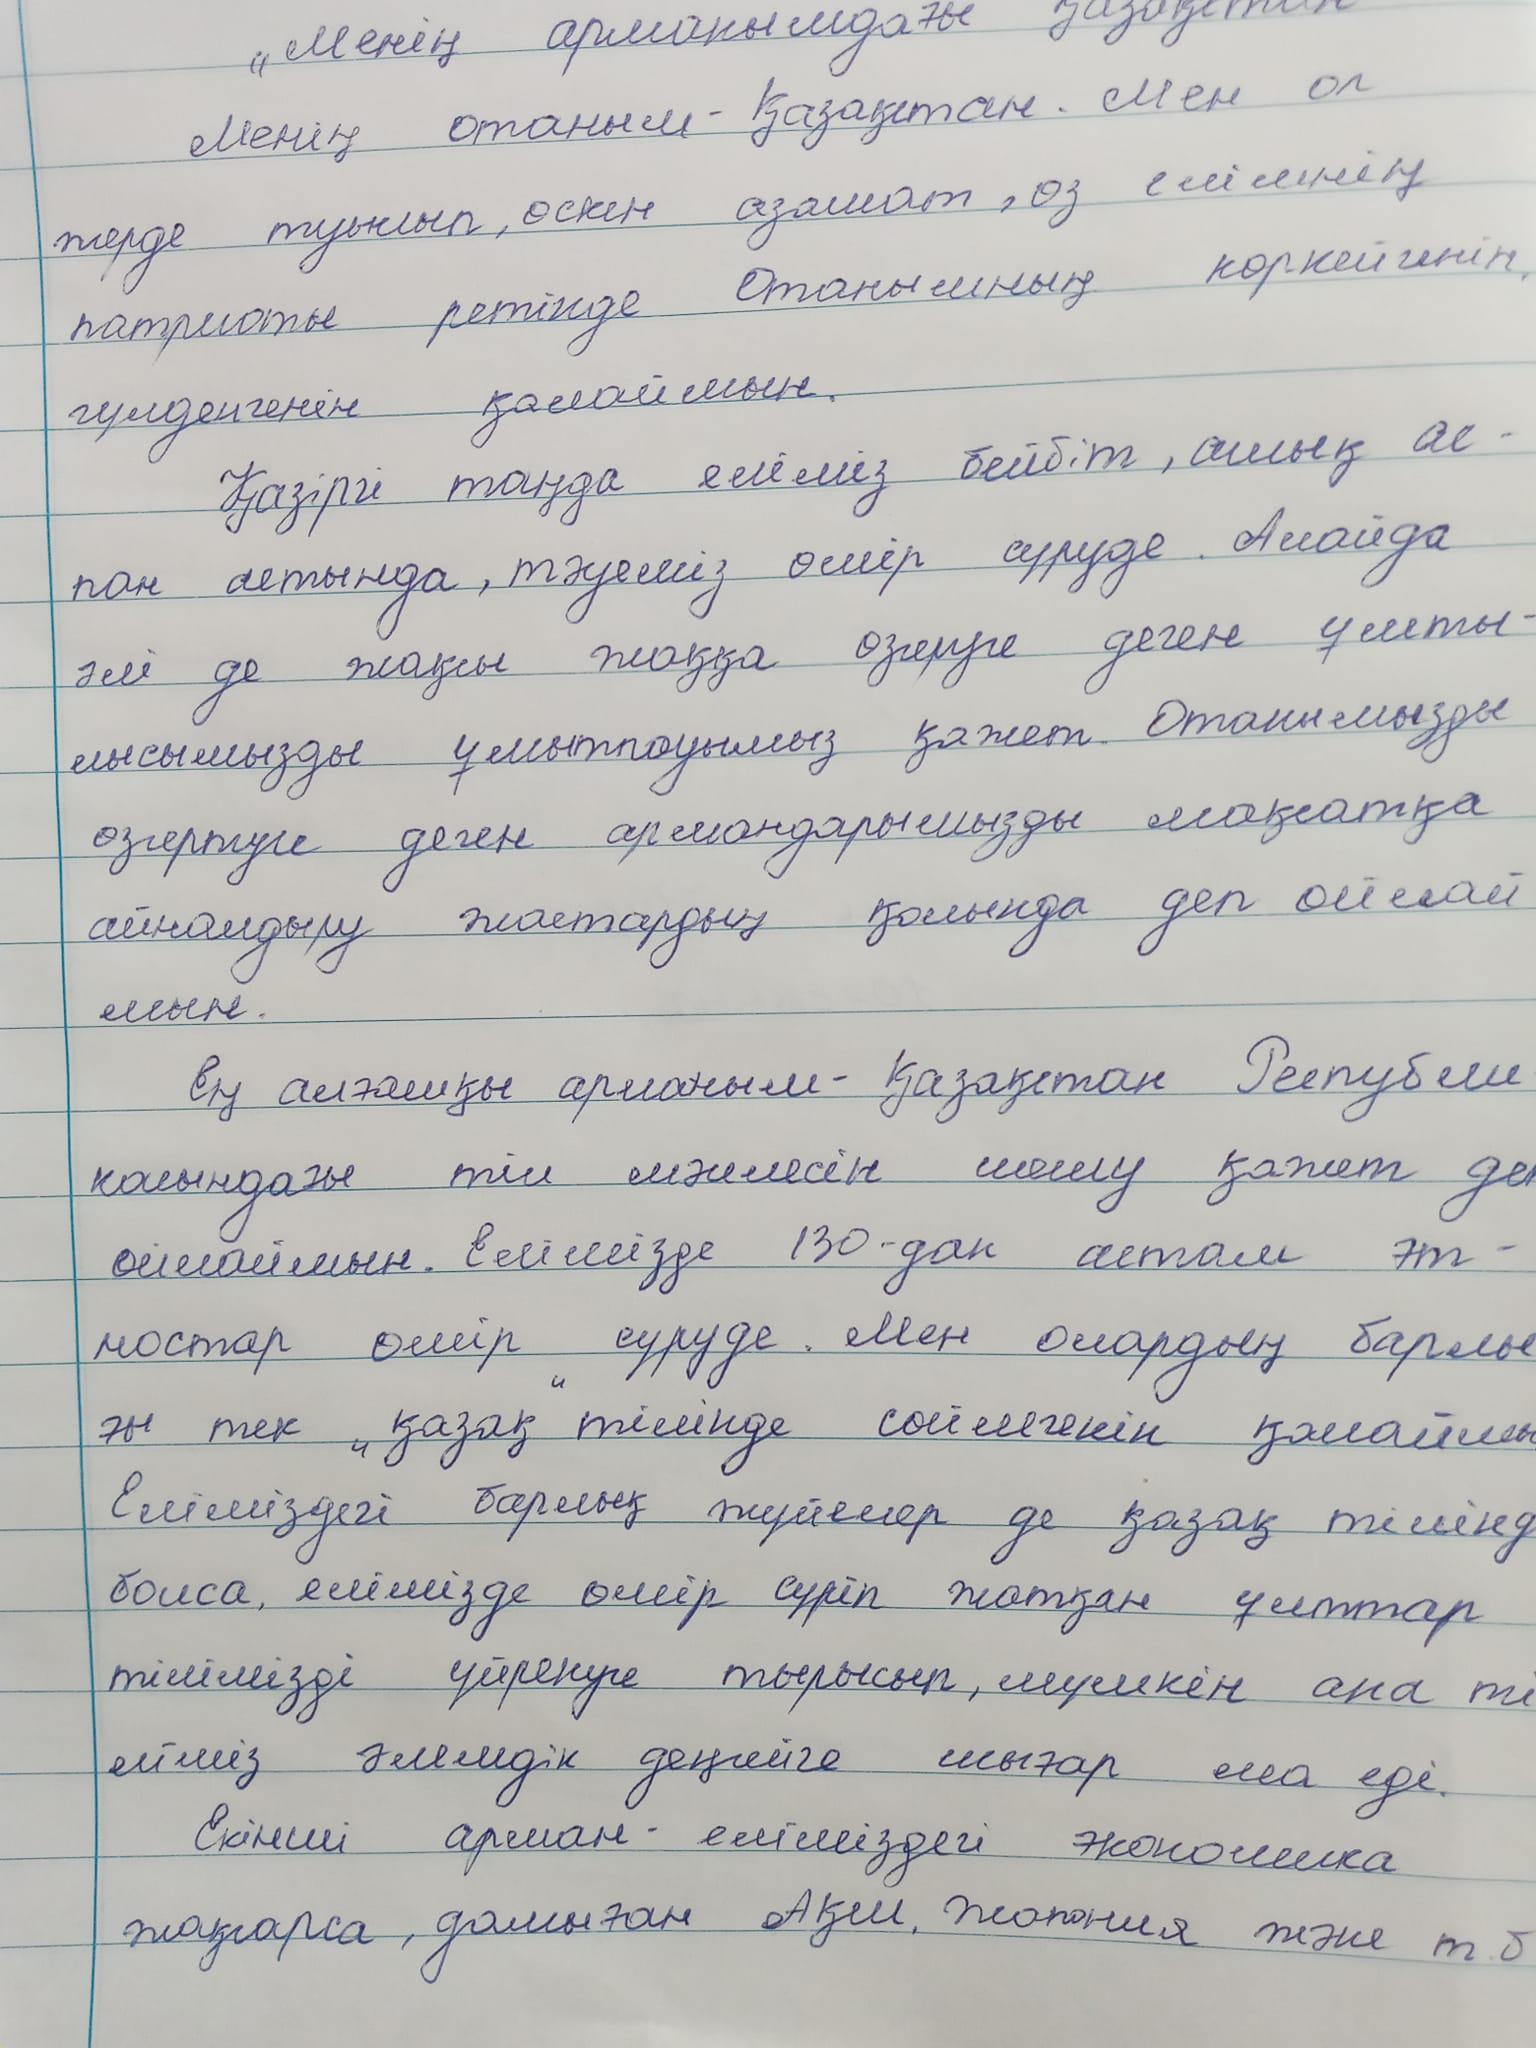 „Менің арманымдағы Қазақстан
Менің отаным - Қазақстан. Мен ол
жерде туылып, өскен азамат, өз елімнің
патриоты ретінде Отанымның көркейгенін,
гүлденгенін қалаймын.
Қазіргі таңда еліміз бейбіт, ашық ас-
пан астында, тәуелсіз өмір сүруде. Алайда
әлі де жақсы жаққа өзгеруге деген ұмты-
лысымызды ұмытпауымыз қажет. Отанымызды
өзгертуге деген армандарымызды мақсатқа
айналдыру жастардың қолында деп ойлай
мын.
Ең алғашқы арманым - Қазақстан Республи
касындағы тіл мәселесін шешу қажет деп
ойлаймын. Елімізде 130-дан астам эт-
ностар өмір сүруде. Мен олардың барлы
ғы тек „қазақ" тілінде сөйлегенін қалаймы
Еліміздегі барлық жүйелер де қазақ тілінд
болса, елімізде өмір сүріп жатқан ұлттар
тілімізді үйренуге тырысып, мүмкін ана ті
ліміз әлемдік деңгейге шығар ма еді.
Екінші арман - еліміздегі экономика
жақсарса, дамыған АҚШ, Жапония және т.б